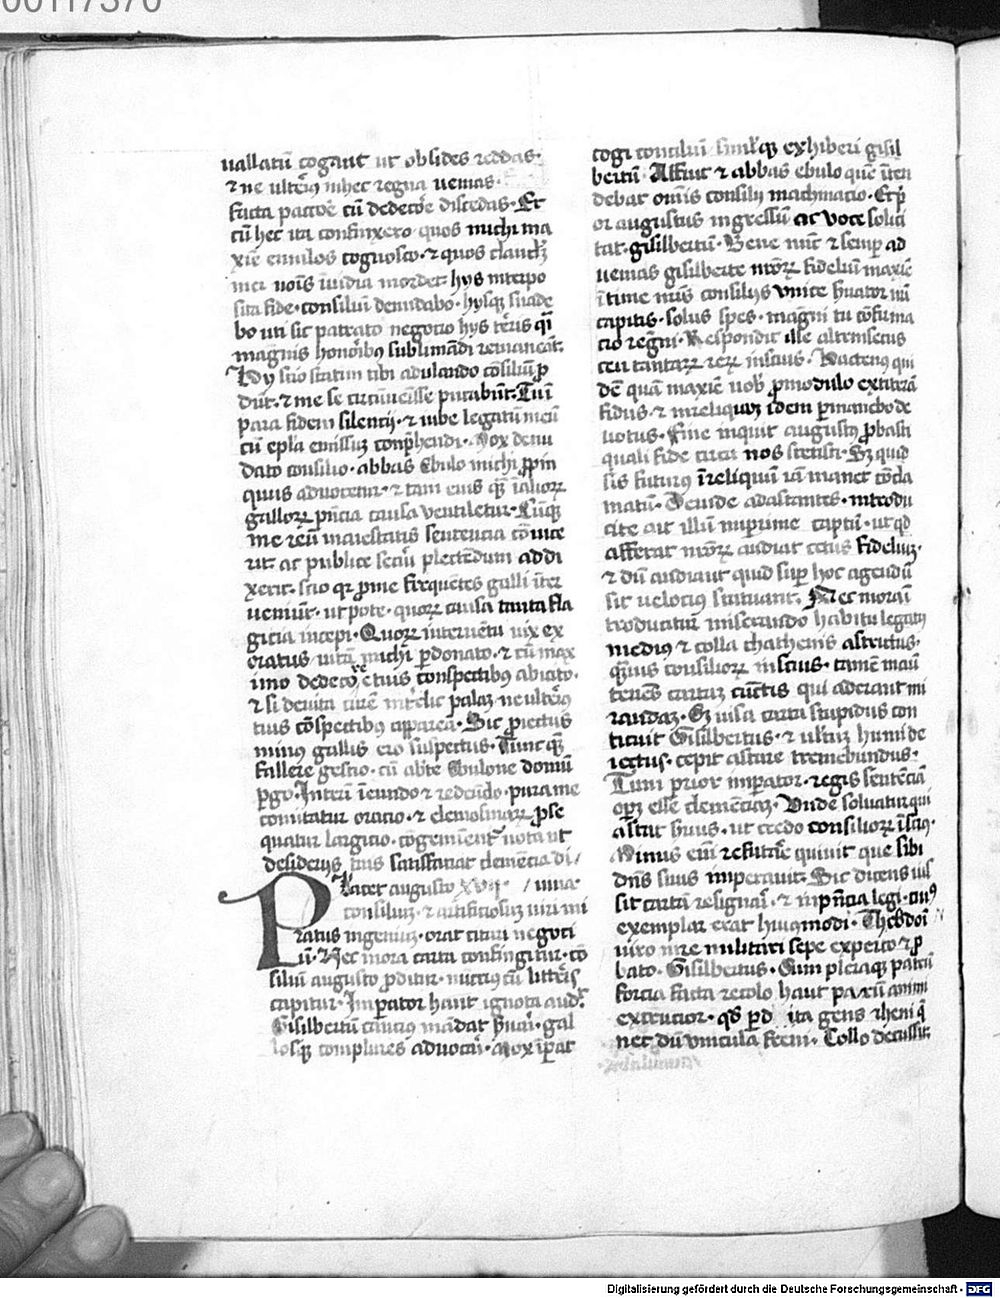 00117370
uallatū cogant ut obsides reddas·
⁊ ne ulteri᷒ in hec regna uenias·
facta pactōe cū dedecōe discedas· Et
cū hec ita confinxero quos michi ma
xīe emulos cognosco· ⁊ quos
mei inuidia mordet· hys interpo
sita fide· consiliū denudabo· hysq; suade
bo uti sic patrato negotio hys t͛ris qͥ
magnis honoͥb᷒ sublimādi remaneāt·
Hy scio statim tibi adulando cōsiliū ꝓ
dūt· ⁊ me se circūuēisse putabūt· Tu
para fidem silentij· ⁊ iube legatū meū
cū epl̄a emissū conp̄hendi· Mox denu
dato consilio· abbas Ebulo michi ꝓpin
quus aduocetur· ⁊ tam eius qͣ aliorꝝ
gallorꝝ p̄ncia causa ventiletur· Cūq;
me reū maiestatis sentencia cōuice
rit· ac publice plectendum addi
xerit· scio qꝛ ꝓ me frequētes galli īter
ueniūt· ut pote· quorꝝ causa tanta fla
gicia incepi· Quorꝝ interuētu uix ex
oratus uitā michi ꝑdonato· ⁊ cū max
imo dedecoͤ e tuis conspectib᷒ abicito·
⁊ si deuita ne ulteri᷒
tuis cōspectib᷒ appareā· Sic ꝓiectus
minus gallis ero suspectus· Tunc qͣ
fallere gestio· cū abb̄te Ebulone domū
ꝑgo· Interī ī eundo ⁊ redeūdo· pura me
comitatur oracio· ⁊ elemosinarꝝ ꝓse
quatur largicio· cogemient᷑ uota ut
desiderijs tuis satisfaciat clemētia di/
Placet augusto XVII· / uina·
consiliū· ⁊ artificiosū uiri mi
ratus ingeniū· orat citari negoci
ū· Nec mora carta confingitur· cō
siliū augusto ꝓditur· nuncius cū litt͛is
capitur· Imꝑator haut ignota aud͛·
Gisilbertū cautius mādat s͛uari· gal
losq; complures aduocari· Mox īꝑat
cogi conciliū simlͥq; exhiberi gisil
bertū· Assunt ⁊ abbas ebulo quē īten
debat om̄is consilij machinatio· Etꝑ
or augustus ingressū ac voce solici
tat· gisilbertū· Bene nūc ⁊ semꝑ ad
uenias gisilberte nr̄orꝝ fideliū maxīe
ītime nr̄is consilijs vnice s͛uator nr̄i
capitis· solus spes· magni tu cōsuma
tio regni· Respondit ille altensecus
ceu tantarꝝ rerꝝ inscius· Hactenus qui
dē quā maxīe uob͛ ꝓ modulo extiterā
fidus· ⁊ in reliquū idem ꝑmanebo de
uotus· Fine inquit august᷒ ꝓbasti
quali fide circa nos stetisti· Sꝫ quid
sis futur᷒ ī reliquū iā manet cōcla
matū· Deinde adastantes· introdu
cite ait illū inprime captū· ut qd̄
afferat nr̄orꝝ audiat cetus fideliū·
⁊ dū audiant quid suꝑ hoc agendū
sit uelocius statuant· Nec morat᷑
troducitur miserando habitu legat᷒
medi᷒ ⁊ colla chathenis astrictus·
qͣuis consiliorꝝ inscius· tamē manū
tenēs cartā cūctis qui aderant mi
randā· Sꝫ uisa carta stupidus con
ticuit Gisilbertus· ⁊ uultū humi de
iectus· cepit astare tremebundus·
Tum prior imꝑator· regis sentēciā
oꝑꝫ esse clemēciā· Vnde soluatur qui
astat huius· ut credo consiliorꝝ īsci᷒·
Minus enī refutare quiuit que sibi
dn̄s suus imperauit· Sic dicens iussit
cartā resignari· ⁊ in p̄ncia legi· cui᷒
exemplar erat huius modi· Thebdoī
uiro in re militari sepe experto ⁊ ꝓ
bato· Gisilbertus· Cum pleraq; patrū
forcia facta recolo haut parū animi
excrucior· qd̄ ꝑd ita gens rheni q̄
nec dū vincula fregi· Collo decussit·
Digitalisierung gefördert durch die Deutsche Forschungsgemeinschaft · DFG